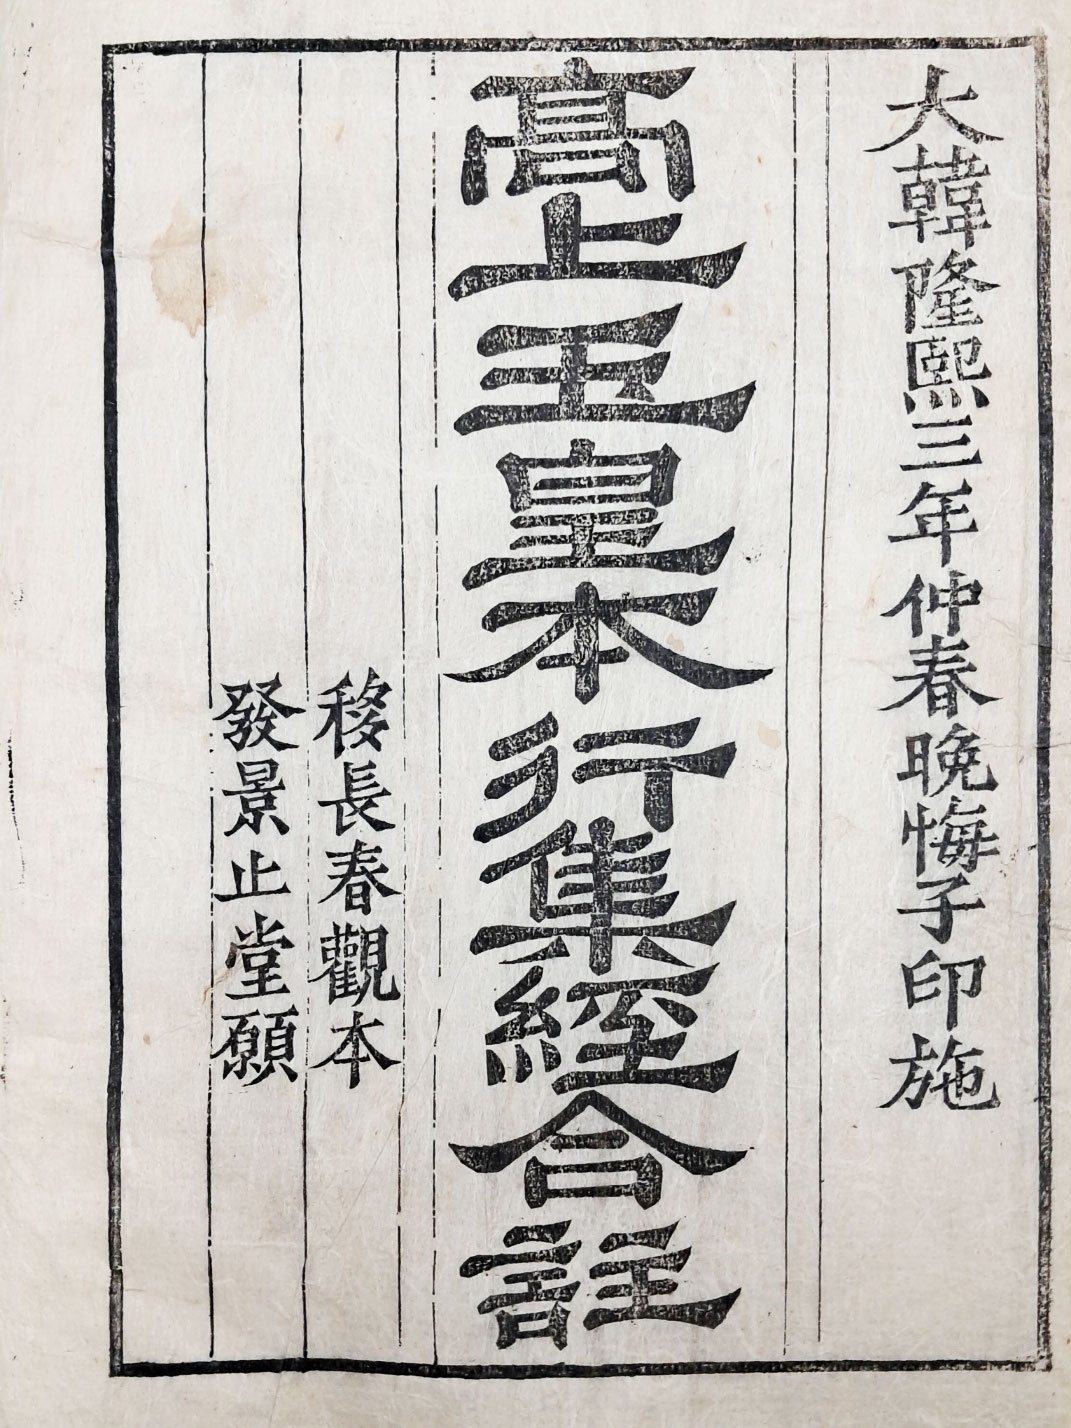 大韓隆熙三年仲春晚悔子印施
高上玉皇本行集經合註
移長春觀本
發景止堂願